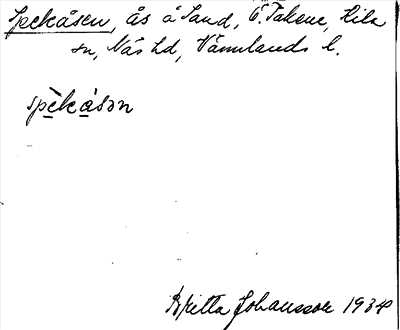 Spekåsen, ås å Sand, Ö. Takene, Kila
sn, Näs hd, Värmlands l.
spèkåsən
Britta Johansson 1934